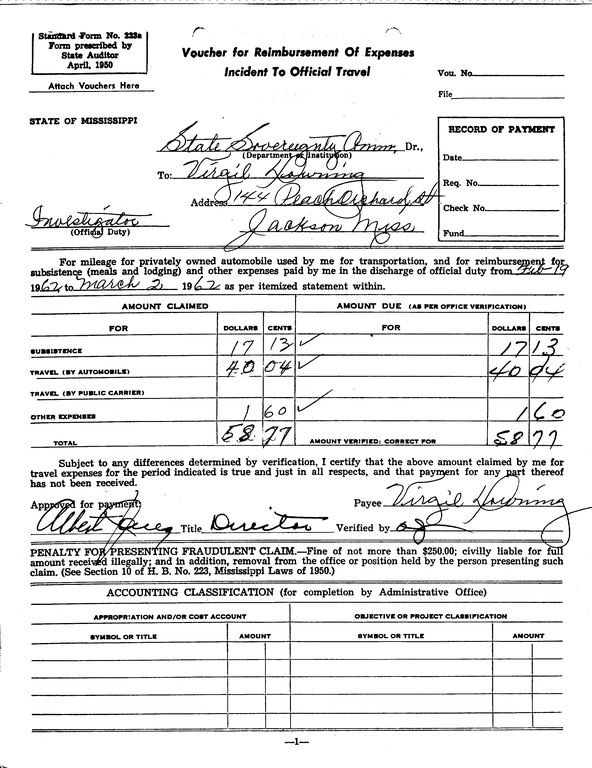 Standard Form No. 223a
Form prescribed by
State Auditor
April, 1950
Attach Vouchers Here
Voucher for Reimbursement Of Expenses
Incident To Official Travel
Vou. No.
File
STATE OF MISSISSIPPI
State Sovereignty Comm, Dr.,
(Department or Institution)
To: Virgil Downing
Address 144 Peach Orchard, St
Jackson Miss.
Investigator
(Official Duty)
RECORD OF PAYMENT
Date
Req. No.
Check No.
Fund
For mileage for privately owned automobile used by me for transportation, and for reimbursement for
subsistence (meals and lodging) and other expenses paid by me in the discharge of official duty from Feb 19
1962 to March 2 1962 as per itemized statement within.
AMOUNT CLAIMED AMOUNT DUE (AS PER OFFICE VERIFICATION)
FOR DOLLARS CENTS FOR DOLLARS CENTS
SUBSISTENCE 17 13 ✓ 17 13
TRAVEL (BY AUTOMOBILE) 40 04 ✓ 40 04
TRAVEL (BY PUBLIC CARRIER)
OTHER EXPENSES 1 60 ✓ 1 60
TOTAL 58 77 AMOUNT VERIFIED: CORRECT FOR 58 77
Subject to any differences determined by verification, I certify that the above amount claimed by me for
travel expenses for the period indicated is true and just in all respects, and that payment for any part thereof
has not been received.
Approved for payment: Payee Virgil Downing
Albert Jones Title Director Verified by
PENALTY FOR PRESENTING FRAUDULENT CLAIM.—Fine of not more than $250.00; civilly liable for full
amount received illegally; and in addition, removal from the office or position held by the person presenting such
claim. (See Section 10 of H. B. No. 223, Mississippi Laws of 1950.)
ACCOUNTING CLASSIFICATION (for completion by Administrative Office)
APPROPRIATION AND/OR COST ACCOUNT OBJECTIVE OR PROJECT CLASSIFICATION
SYMBOL OR TITLE AMOUNT SYMBOL OR TITLE AMOUNT
—1—